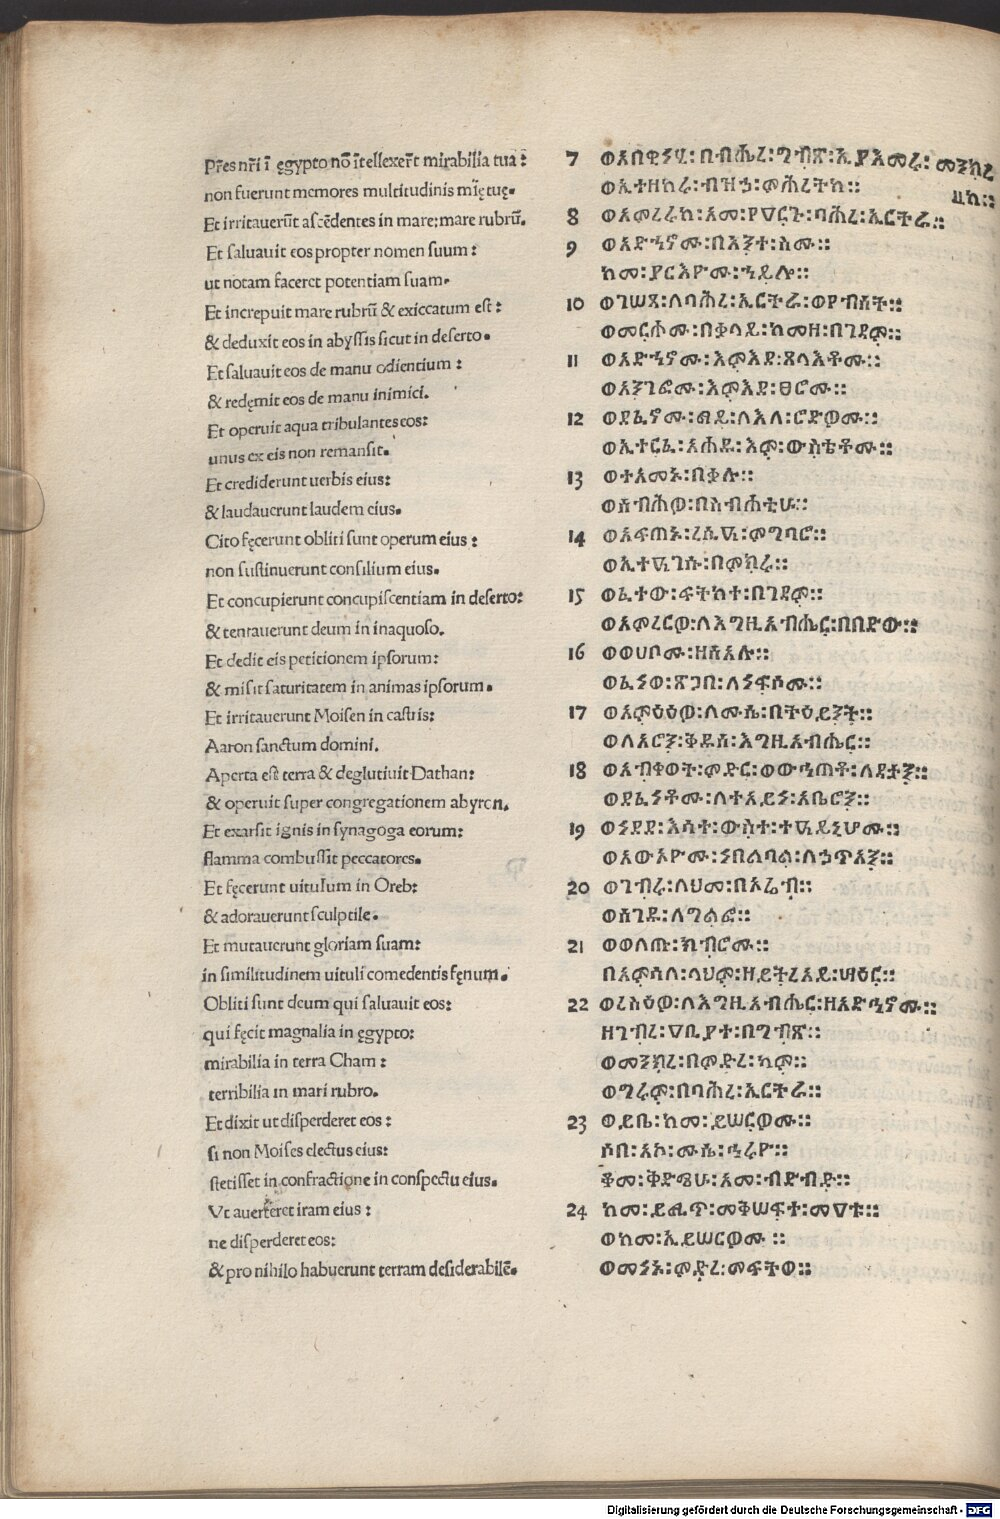 Pr̃es nr̃i ĩ ęgypto nõ ĩtellexer̃t mirabilia tua:
non fuerunt memores multitudinis mĩę tuę.
Et irritauerũt ascẽdentes in mare; mare rubrũ.
Et saluauit eos propter nomen suum:
ut notam faceret potentiam suam.
Et increpuit mare rubrũ & exiccatum est:
& deduxit eos in abyssis sicut in deserto.
Et saluauit eos de manu odientium:
& redęmit eos de manu inimici.
Et operuit aqua tribulantes eos:
unus ex eis non remansit.
Et crediderunt uerbis eius:
& laudauerunt laudem eius.
Cito fęcerunt obliti sunt operum eius:
non sustinuerunt consilium eius.
Et concupierunt concupiscentiam in deserto:
& tentauerunt deum in inaquoso.
Et dedit eis petitionem ipsorum:
& misit saturitatem in animas ipsorum.
Et irritauerunt Moisen in castris:
Aaron sanctum domini.
Aperta est terra & deglutiuit Dathan:
& operuit super congregationem abyron.
Et exarsit ignis in synagoga eorum:
flamma combussit peccatores.
Et fęcerunt uitulum in Oreb:
& adorauerunt sculptile.
Et mutauerunt gloriam suam:
in similitudinem uituli comedentis fęnum.
Obliti sunt deum qui saluauit eos:
qui fęcit magnalia in ęgypto:
mirabilia in terra Cham:
terribilia in mari rubro.
Et dixit ut disperderet eos:
si non Moises electus eius:
stetisset in confractione in conspectu eius.
Vt auerteret iram eius:
ne disperderet eos:
& pro nihilo habuerunt terram desiderabilẽ.
7 ወአበዊነሂ፡ በብሔረ፡ ግብጽ፡ ኢያእመሩ፡ መንክረ
ከ።
ወኢተዘከሩ፡ ብዝኃ፡ ምሕረትከ።
8 ወአምረሩከ፡ አመ፡ የዐርጉ፡ ባሕረ፡ ኤርትራ።
9 ወአድኀኖሙ፡ በእንተ፡ ስሙ።
ከመ፡ ያርእዮሙ፡ ኀይሎ።
10 ወገሠጻ፡ ለባሕረ፡ ኤርትራ፡ ወየብሰት።
ወመርሖሙ፡ በቀላይ፡ ከመዘ፡ በገዳም።
11 ወአድኀኖሙ፡ እምእደ፡ ጸላእቶሙ።
ወአንገፎሙ፡ እምእደ፡ ፀሮሙ።
12 ወደፈኖሙ፡ ማይ፡ ለእለ፡ ሮድዎሙ።
ወኢተርፈ፡ አሐዱ፡ እም፡ ውስቴቶሙ።
13 ወተአመኑ፡ በቃሉ።
ወሰብሕዎ፡ በስብሐቲሁ።
14 ወአፍጠኑ፡ ረሲዐ፡ ምግባሮ።
ወኢተዐገሱ፡ በምክሩ።
15 ወፈተው፡ ፍትወተ፡ በገዳም።
ወአምረርዎ፡ ለእግዚአብሔር፡ በበድው።
16 ወወሀቦሙ፡ ዘሰአሉ።
ወፈነወ፡ ጽጋበ፡ ለነፍሶሙ።
17 ወአምዕዕዎ፡ ለሙሴ፡ በትዕይንት።
ወለአሮን፡ ቅዱሰ፡ እግዚአብሔር።
18 ወአብቀወት፡ ምድር፡ ወውኅጠቶ፡ ለዳታን።
ወደፈነቶሙ፡ ለተአይነ፡ አቤሮን።
19 ወነደደ፡ እሳተ፡ ውስተ፡ ተዐይኒሆሙ።
ወአውአዮሙ፡ ነበልባል፡ ለኃጥአን።
20 ወገብሩ፡ ላህመ፡ በኦሬብ።
ወሰገዱ፡ ለግልፎ።
21 ወወለጡ፡ ክብሮሙ።
በአምሳለ፡ ላህም፡ ዘይትረአይ፡ ሣዕር።
22 ወረስዕዎ፡ ለእግዚአብሔር፡ ዘአድኀኖሙ።
ዘገብረ፡ ዐቢያተ፡ በግብጽ።
ወመንክረ፡ በምድረ፡ ካም።
ወግሩም፡ በባሕረ፡ ኤርትራ።
23 ወይቤ፡ ከመ፡ ይሠርዎሙ።
ሶበ፡ አኮ፡ ሙሴ፡ ኅሩዮ።
ቆመ፡ ቅድሜሁ፡ አመ፡ ብድብድ።
24 ከመ፡ ይሚጥ፡ መቅሠፍተ፡ መዐቱ።
ወከመ፡ ኢይሠርዎሙ።
ወመነኑ፡ ምድረ፡ መፍትወ።
Digitalisierung gefördert durch die Deutsche Forschungsgemeinschaft - DFG